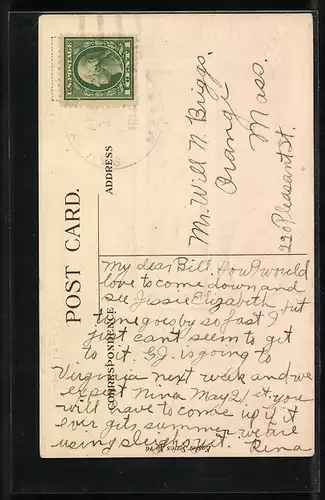 U.S. POSTAGE
1 CENT 1
POST CARD.
CORRESPONDENCE
ADDRESS
Mr. Will N. Briggs.
Orange
Mass.
220 Pleasant St.
My dear Bill. How I would
love to come down and
see Jessie Elizabeth but
time goes by so fast I
just can't seem to get
to it. G.J. is going to
Virginia next week and we
expect Nina May 21st. you
will have to come up if it
ever gets summer. we are
using sleighs yet. Rena
Easter Series No.